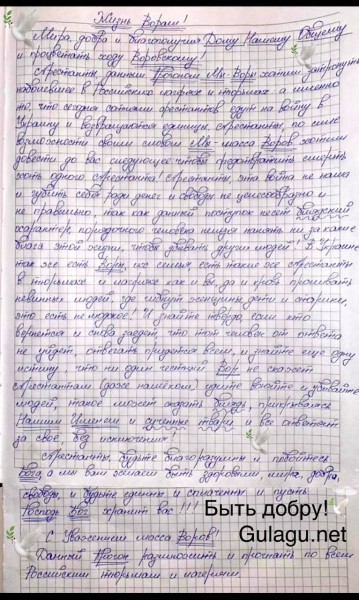 Жизнь Ворам!
Мира, добра и благополучия Дому Нашему Общему
и процветать ходу Воровскому!
Арестанты, данным Прогоном Мы-Воры хотим затронуть
наболевшее в Российских лагерях и тюрьмах а именно
то, что сегодня сотнями арестантов едут на войну в
Украину и возвращаются единицы. Арестанты, по силе
возможности своим словом Мы - масса Воров хотели
довести до вас следующее чтобы предотвратить смерть
хоть одного арестанта! Арестанты, эта война не наша
и губить себя ради денег и свободы не целесообразно и
не правильно, так как данный поступок несет блядский
характер, порядочного человека нельзя нанять ни за какие
блага этой жизни, чтобы убивать других людей! В Украине
так же есть Воры, их семьи, есть такие же арестанты
в тюрьмах и лагерях как и вы да и гнать проливать
невинных людей, где гибнут женщины дети и старики,
это есть не людское! И знайте твердо если кто
вернется и снова заедет, что тот человек от ответа
не уйдет, отвечать придется всем, и знайте еще одну
истину, что ни один честный Вор не скажет
арестантам (даже намеком) идите воюйте и убивайте
людей, такое может сказать блядь, прикрываясь
Нашим Именем и сученные твари и все ответят
за свое, без исключения!
Арестанты, будьте благоразумны и побойтесь
Бога, а мы вам желаем быть здоровыми, мира, добра,
свободы, и будьте едины и сплоченны и пусть
Господь Бог хранит вас!!!
Быть добру!
Gulagu.net
С Уважением масса Воров!
Данный Прогон размножить и прогнать по всем
Российским тюрьмам и лагерям.